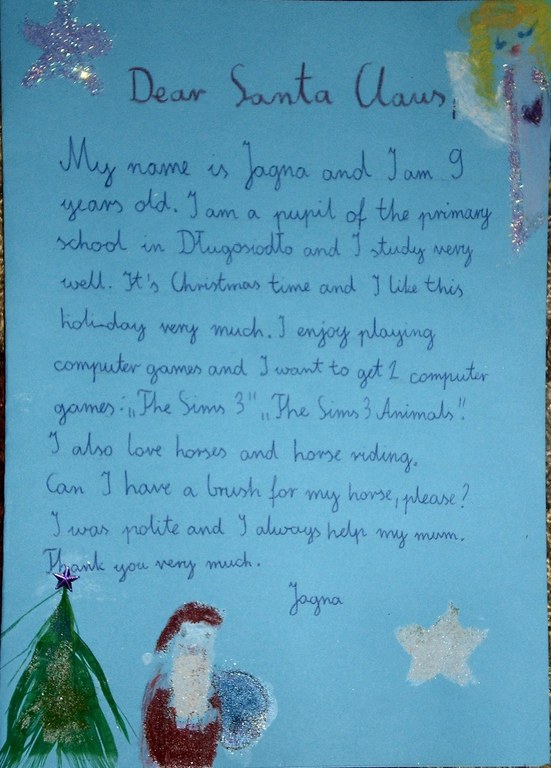 Dear Santa Claus,
My name is Jagna and I am 9
years old. I am a pupil of the primary
school in Długosiodło and I study very
well. It's Christmas time and I like this
holi-day very much. I enjoy playing
computer games and I want to get 2 computer
games: „The Sims 3" „The Sims 3 Animals".
I also love horses and horse riding.
Can I have a brush for my horse, please?
I was polite and I always help my mum.
Thank you very much.
Jagna